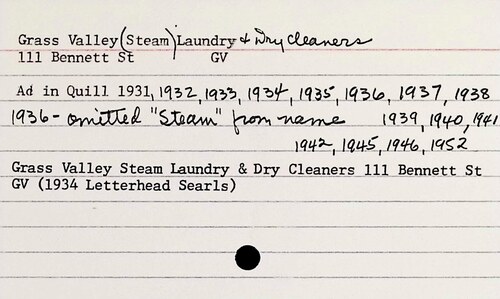 Grass Valley (Steam) Laundry & Dry Cleaners
111 Bennett St GV
Ad in Quill 1931, 1932, 1933, 1934, 1935, 1936, 1937, 1938
1936- omitted "Steam" from name 1939, 1940, 1941
1942, 1945, 1946, 1952
Grass Valley Steam Laundry & Dry Cleaners 111 Bennett St
GV (1934 Letterhead Searls)